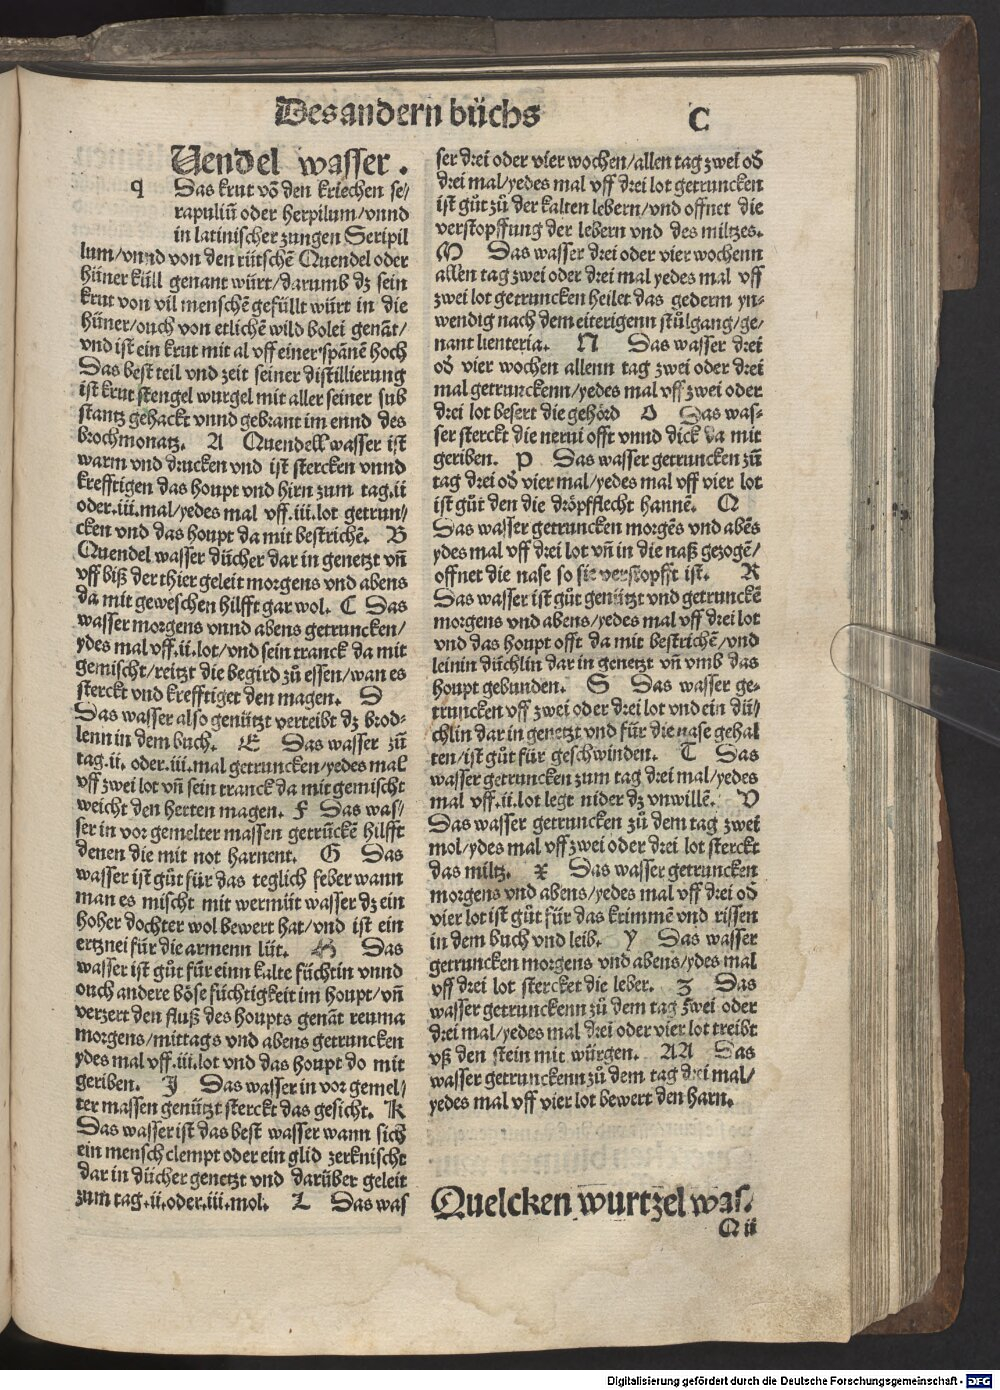 Des andern büchs
C
Uendel wasser.
q Das krut vō den kriechen se/
rapuliū oder herpilum/vnnd
in latinischer zungen Seripil
lum/vnnd von den tütschē Quendel oder
hüner küll genant würt/darumb dz sein
krut von vil menschē gefüllt würt in die
hüner/ouch von etlichē wild bolei genāt/
vnd ist ein krut mit al vff einer spānē hoch
Das best teil vnd zeit seiner distillierung
ist krut stengel wurgel mit aller seiner sub
stantz gehackt vnnd gebrant im ennd des
brochmonatz. A Quendell wasser ist
warm vnd drucken vnd ist stercken vnnd
krefftigen das houpt vnd hirn zum tag.ii
oder.iii.mal/yedes mal vff.iii.lot getrun/
cken vnd das houpt da mit bestrichē. B
Quendel wasser dücher dar in genetzt vn̄
vff biß der thier geleit morgens vnd abens
da mit geweschen hilfft gar wol. C Das
wasser morgens vnnd abens getruncken/
ydes mal vff.ii.lot/vnd sein tranck da mit
gemischt/reitzt die begird zů essen/wan es
sterckt vnd krefftiget den magen. D
Das wasser also genützt verteibt dz brod⸗
lenn in dem buch. E Das wasser zū
tag.ii. oder.iii.mal getruncken/yedes mal
vff zwei lot vn̄ sein tranck da mit gemischt
weicht den herten magen. F Das was/
ser in vor gemelter massen getrūckē hilfft
denen die mit not harnent. G Das
wasser ist gůt für das teglich feber wann
man es mischt mit wermůt wasser dz ein
hoher dochter wol bewert hat/vnd ist ein
ertznei für die armenn lüt. H Das
wasser ist gůt für einn kalte füchtin vnnd
ouch andere böse füchtigkeit im houpt/vn̄
verzert den fluß des houpts genāt reuma
morgens/mittags vnd abens getruncken
ydes mal vff.iii.lot vnd das houpt do mit
geriben. J Das wasser in vor gemel/
ter massen genützt sterckt das gesicht. K
Das wasser ist das best wasser wann sich
ein mensch clempt oder ein glid zerknischt
dar in dücher genetzt vnd darüber geleit
zum tag.ii.oder.iii.mol. L Das was
ser drei oder vier wochen/allen tag zwei od̄
drei mal/yedes mal vff drei lot getruncken
ist gůt zů der kalten lebern/vnd offnet die
verstopffung der lebern vnd des miltzes.
M Das wasser drei oder vier wochenn
allen tag zwei oder drei mal yedes mal vff
zwei lot getruncken heilet das gederm yn⸗
wendig nach dem eiterigenn stůlgang/ge/
nant lienteria. N Das wasser drei
od̄ vier wochen allenn tag zwei oder drei
mal getrunckenn/yedes mal vff zwei oder
drei lot besert die gehörd O Das was⸗
ser sterckt die nerui offt vnnd dick da mit
geriben. P Das wasser getruncken zū
tag drei od̄ vier mal/yedes mal vff vier lot
ist gůt den die dröpfflecht hannē. Q
Das wasser getruncken morgēs vnd abēs
ydes mal vff drei lot vn̄ in die naß gezogē/
offnet die nase so sie verstopfft ist. R
Das wasser ist gůt genützt vnd getrunckē
morgens vnd abens/yedes mal vff drei lot
vnd das houpt offt da mit bestrichē/vnd
leinin düchlin dar in genetzt vn̄ vmb das
houpt gebunden. S Das wasser ge⸗
truncken vff zwei oder drei lot vnd ein dü/
chlin dar in genetzt vnd für die nase gehal
ten/ist gůt für geschwinden. T Das
wasser getruncken zum tag drei mal/yedes
mal vff.ii.lot legt nider dz vnwillē. V
Das wasser getruncken zů dem tag zwei
mol/ydes mal vff zwei oder drei lot sterckt
das miltz. X Das wasser getruncken
morgens vnd abens/yedes mal vff drei od̄
vier lot ist gůt für das krimmē vnd rissen
in dem buch vnd leib. Y Das wasser
getruncken morgens vnd abens/ydes mal
vff drei lot stercket die leber. Z Das
wasser getrunckenn zů dem tag zwei oder
drei mal/yedes mal drei oder vier lot treibt
vß den stein mit würgen. AA Das
wasser getrunckenn zů dem tag drei mal/
yedes mal vff vier lot bewert den harn.
Quelcken wurtzel was/
Q ii
Digitalisierung gefördert durch die Deutsche Forschungsgemeinschaft - DFG